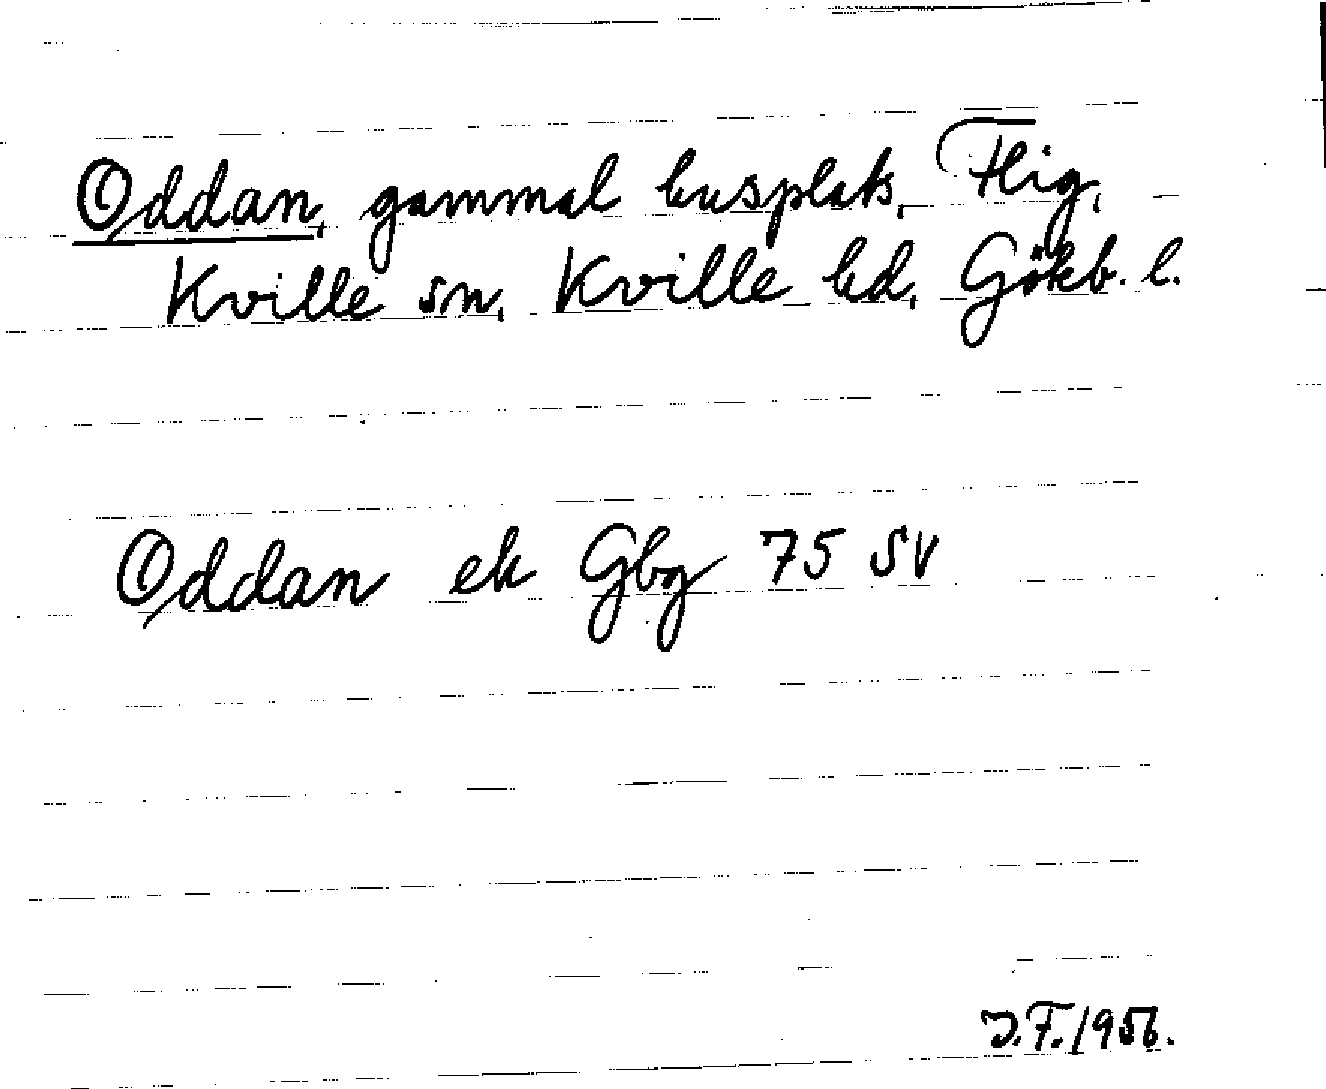 Oddan, gammal husplats, Flig,
Kville sn, Kville hd, Göteb. l.
Oddan ek Gbg 75 SV
J.F. 1956.